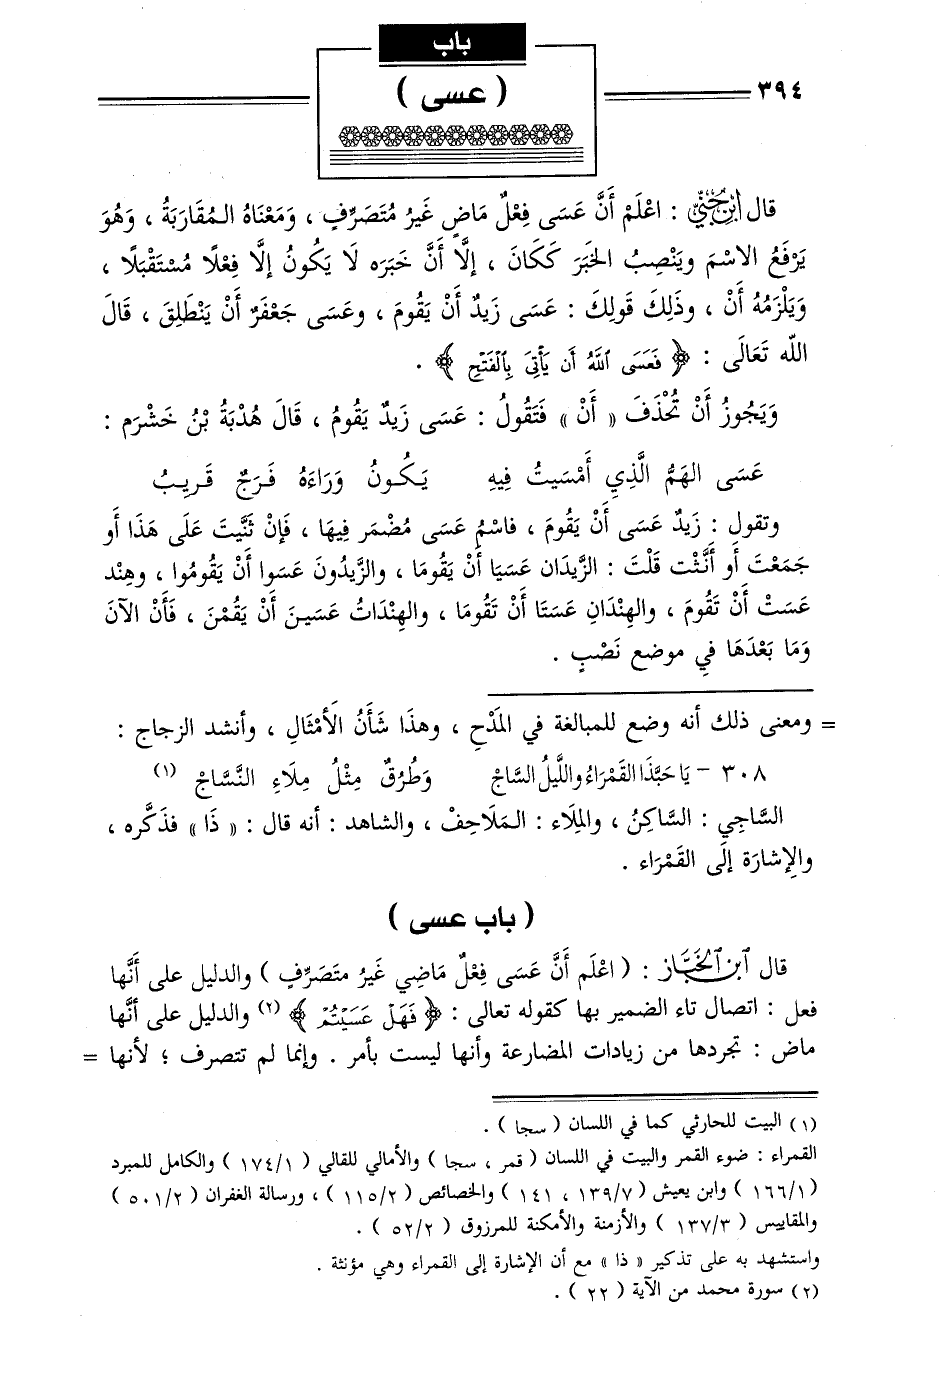 باب
( عسى )
٣٩٤
قال ابن جني : اعْلَمْ أَنَّ عَسَى فِعْلٌ مَاضٍ غَيرُ مُتَصَرِّفٍ ، وَمَعْنَاهُ المُقَارَبَةُ ، وَهُوَ
يَرْفَعُ الاسْمَ ويَنْصِبُ الخَبَرَ كَكَانَ ، إلَّا أَنَّ خَبَرَه لَا يَكُونُ إلَّا فِعْلًا مُسْتَقْبَلًا ،
وَيَلْزَمُهُ أَنْ ، وذَلِكَ قَولِكَ : عَسَى زَيدٌ أَنْ يَقُومَ ، وعَسَى جَعْفَرٌ أَنْ يَنْطَلِقَ ، قَالَ
اللّه تَعَالَى : ﴿ فَعَسَى ٱللَّهُ أَن يَأْتِىَ بِٱلْفَتْحِ ﴾ .
وَيَجُوزُ أَنْ تُحْذَفَ « أَنْ » فَتَقُولُ : عَسَى زَيدٌ يَقُومُ ، قَالَ هُدْبَةُ بْنُ خَشْرَم :
عَسَى الهَمُّ الَّذِي أَمْسَيتُ فِيهِ يَكُونُ وَرَاءَهُ فَرَجٌ قَرِيبُ
وتقول : زَيدٌ عَسَى أَنْ يَقُومَ ، فاسْمُ عَسَى مُضْمَر فِيهَا ، فَإنْ ثَنَّيتَ عَلَى هَذَا أو
جَمَعْتَ أو أَنَّثْت قُلْتَ : الزَّيدَان عَسَيَا أَنْ يَقُومَا ، والزَّيدُونَ عَسَوا أَنْ يَقُومُوا ، وهِنْد
عَسَتْ أَنْ تَقُومَ ، والهِنْدَانِ عَسَتَا أَنْ تَقُومَا ، والهِنْدَاتُ عَسَينَ أَنْ يَقُمْنَ ، فَأَنْ الآنَ
وَمَا بَعْدَهَا فِي موضع نَصْبٍ .
= ومعنى ذلك أنه وضع للمبالغة في المَدْحِ ، وهذَا شَأَنُ الأَمْثَالِ ، وأنشد الزجاج :
٣٠٨ - يَا حَبَّذَا القَمْرَاءُ واللَّيلُ السَّاجْ وَطُرُقٌ مِثْلُ مِلَاءِ النَّسَاجْ (١)
السَّاجِي : السَّاكِنُ ، والمِلَاء : المَلَاحِفْ ، والشاهد : أنه قال : « ذَا » فذَكَّره ،
والإشَارَة إلَى القَمْرَاء .
( باب عسى )
قال ابن الخباز : ( اعْلَم أَنَّ عَسَى فِعْلٌ مَاضِي غَيرُ متَصَرِّفٍ ) والدليل على أنَّها
فعل : اتصال تاء الضمير بها كقوله تعالى : ﴿ فَهَلْ عَسَيْتُمْ ﴾ (٢) والدليل على أنَّها
ماض : تجردها من زيادات المضارعة وأنها ليست بأمر . وإنما لم تتصرف ؛ لأنها =
(١) البيت للحارثي كما في اللسان ( سجا ) .
القمراء : ضوء القمر والبيت في اللسان ( قمر ، سجا ) والأمالي للقالي ( ١٧٤/١ ) والكامل للمبرد
( ١٦٦/١ ) وابن يعيش ( ١٣٩/٧ ، ١٤١ ) والخصائص ( ١١٥/٢ ) ، ورسالة الغفران ( ٥٠١/٢ )
والمقاييس ( ١٣٧/٣ ) والأزمنة والأمكنة للمرزوق ( ٥٢/٢ ) .
واستشهد به على تذكير « ذا » مع أن الإشارة إلى القمراء وهي مؤنثة .
(٢) سورة محمد من الآية ( ٢٢ ) .